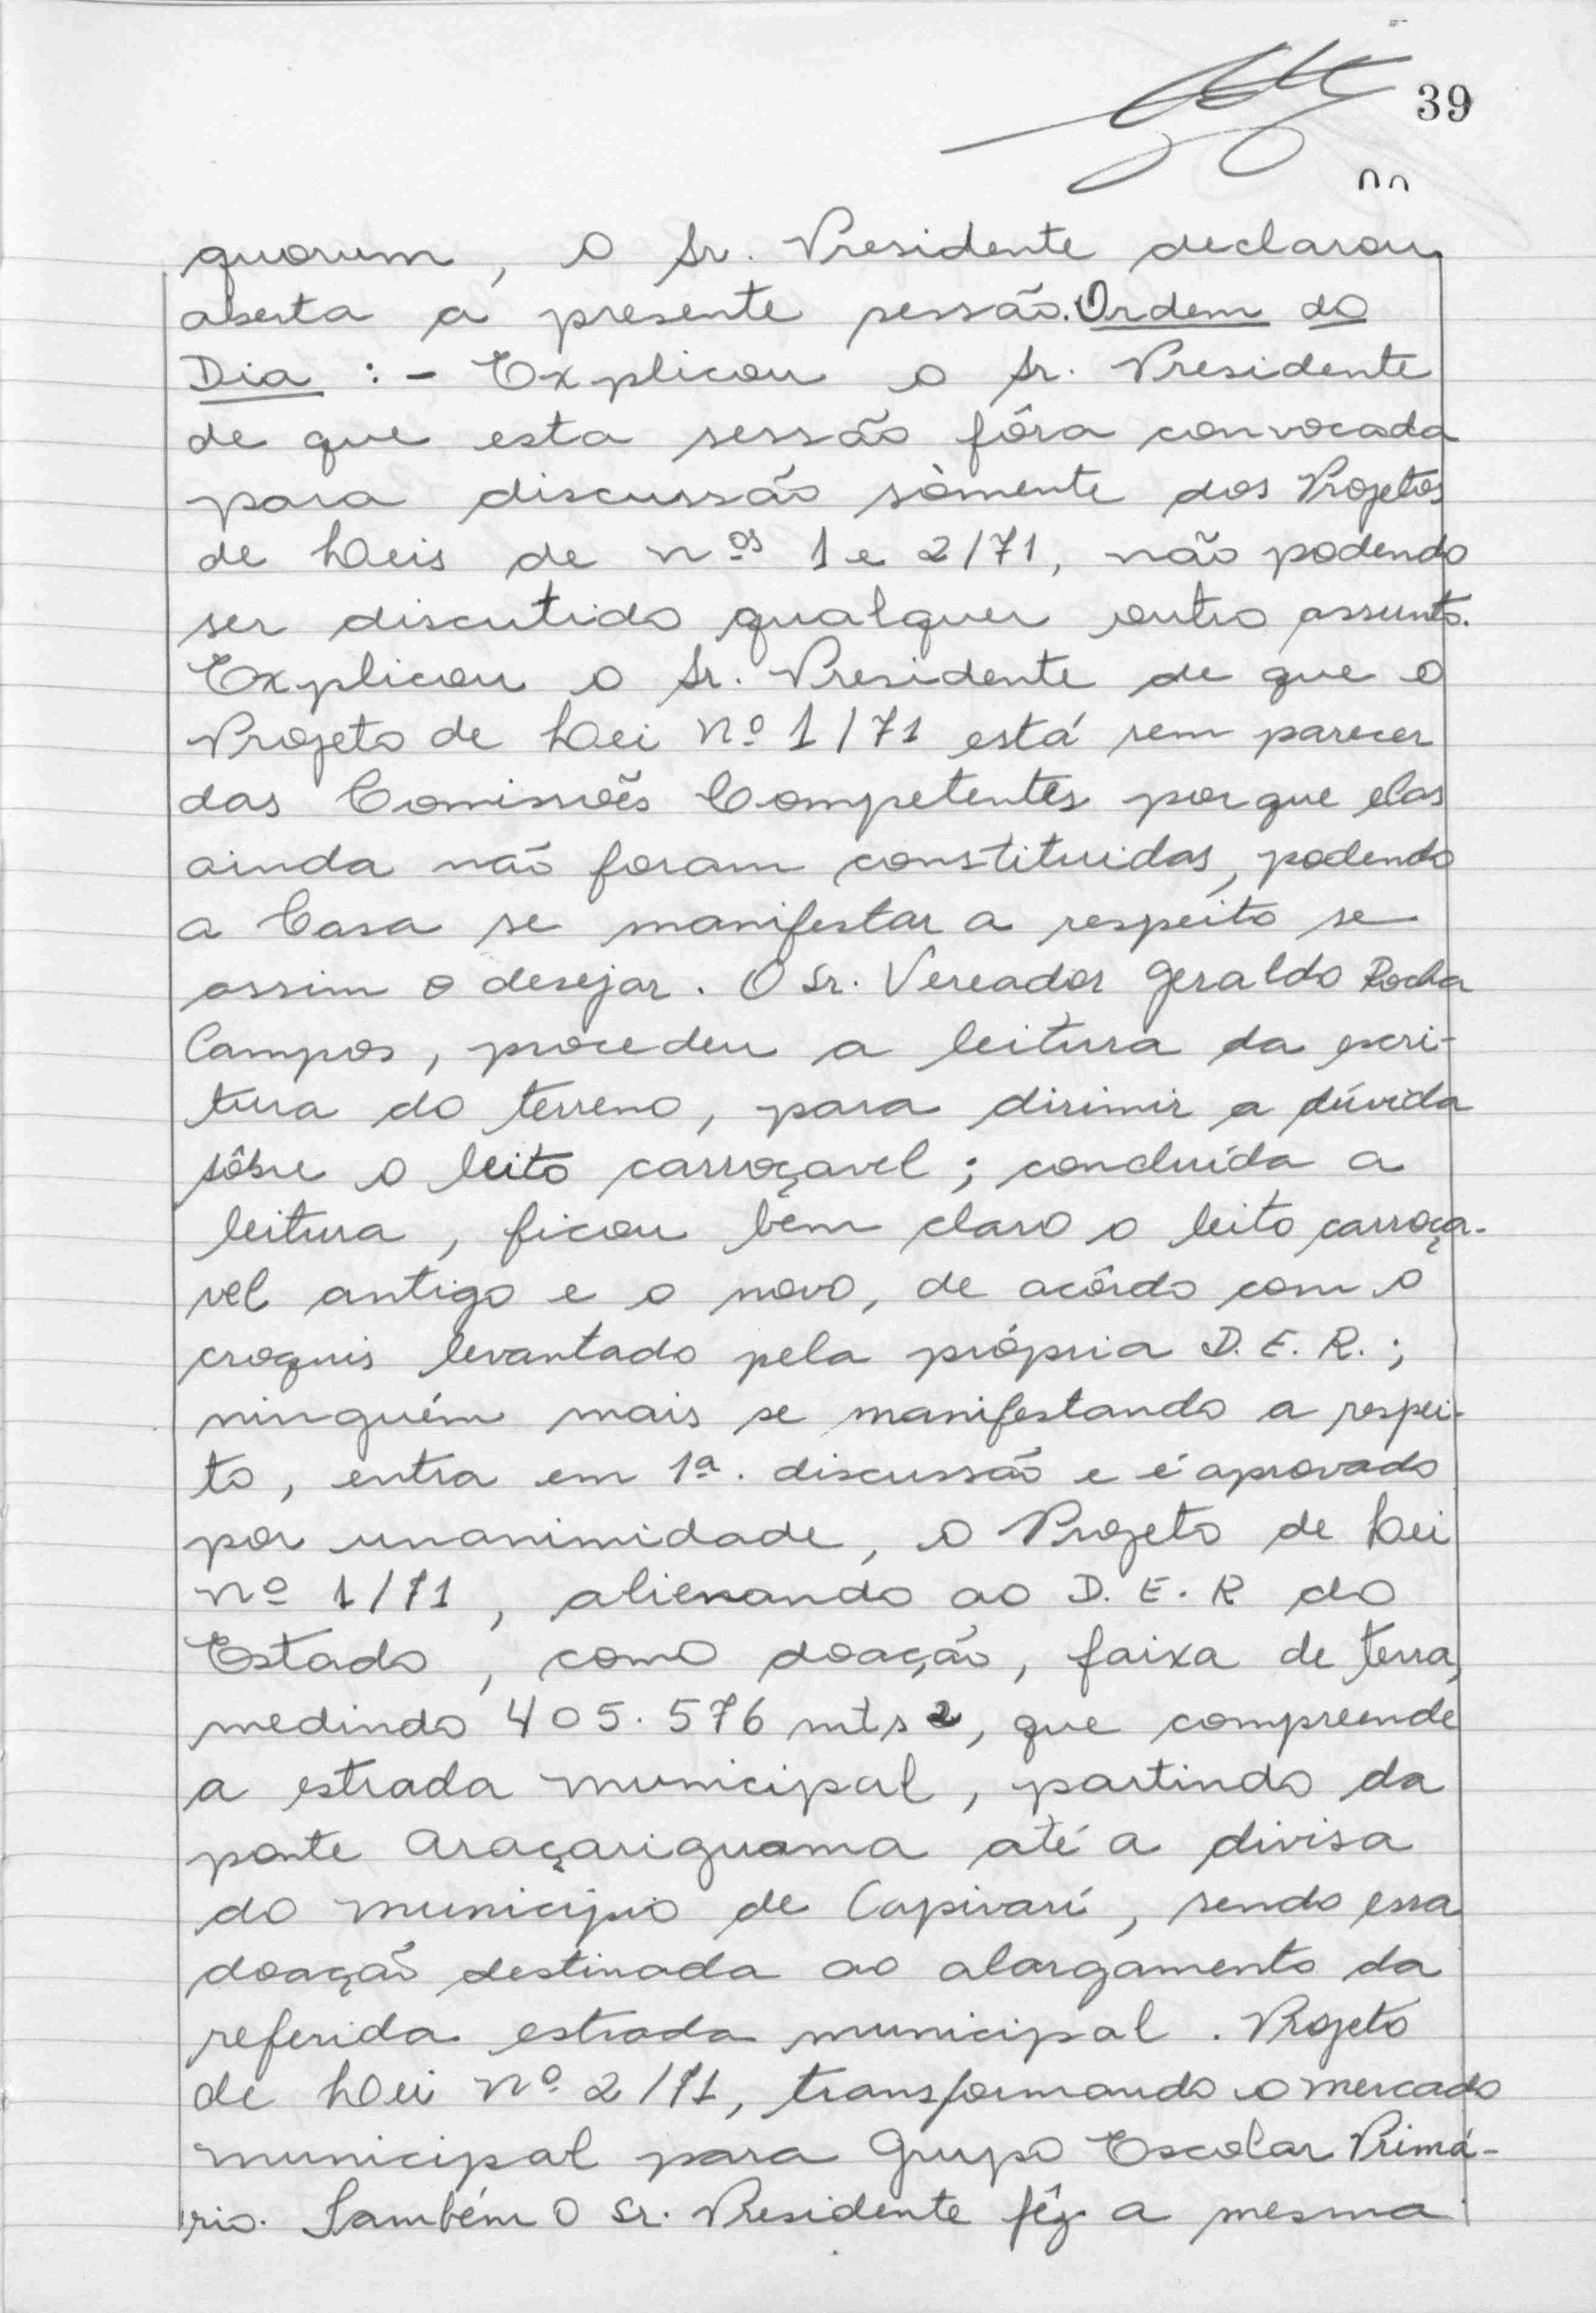 39
quorum, o Sr. Presidente declarou
aberta a presente sessão. Ordem do
Dia : - Explicou o Sr. Presidente
de que esta sessão fôra convocada
para discussão sòmente dos Projetos
de Leis de nºs 1 e 2/71, não podendo
ser discutido qualquer outro assunto.
Explicou o Sr. Presidente de que o
Projeto de Lei nº 1/71 está sem parecer
das Comissões Competentes porque elas
ainda não foram constituidas, podendo
a Casa se manifestar a respeito se
assim o desejar. O Sr. Vereador Geraldo Rocha
Campos, procedeu a leitura da escri-
tura do terreno, para dirimir a dúvida
sôbre o leito carroçavel; concluída a
leitura, ficou bem claro o leito carroça-
vel antigo e o novo, de acôrdo com o
croquis levantado pela própria D. E. R.;
ninguém mais se manifestando a respei-
to, entra em 1ª. discussão e é aprovado
por unanimidade, o Projeto de Lei
nº 1/71, alienando ao D. E. R do
Estado, como doação, faixa de terra,
medindo 405.576 mts2, que compreende
a estrada municipal, partindo da
ponte Araçariguama até a divisa
do município de Capivarí, sendo essa
doação destinada ao alargamento da
referida estrada municipal. Projeto
de Lei nº 2/71, transformando o mercado
municipal para Grupo Escolar Primá-
rio. Também o Sr. Presidente fêz a mesma